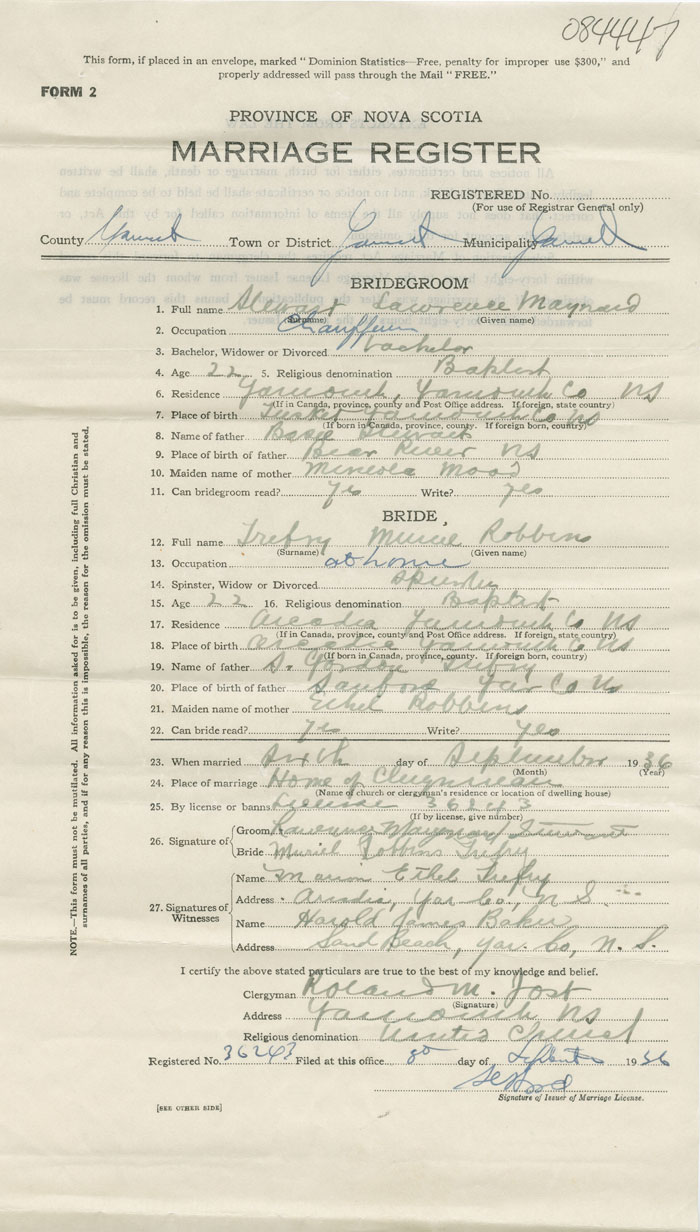 084447
This form, if placed in an envelope, marked "Dominion Statistics—Free, penalty for improper use $300," and
properly addressed will pass through the Mail "FREE."
FORM 2
PROVINCE OF NOVA SCOTIA
MARRIAGE REGISTER
REGISTERED No.
(For use of Registrar General only)
County Yarmouth Town or District Yarmouth Municipality Yarmouth
BRIDEGROOM
1. Full name Stewart Lawrence Maynard
(Surname) (Given name)
2. Occupation Chauffeur
3. Bachelor, Widower or Divorced bachelor
4. Age 22 5. Religious denomination Baptist
6. Residence Yarmouth, Yarmouth Co NS
(If in Canada, province, county and Post Office address. If foreign, state country)
7. Place of birth Tusket Yarmouth Co NS
(If born in Canada, province, county. If foreign born, country)
8. Name of father Stewart
9. Place of birth of father Bear River NS
10. Maiden name of mother Mineola Mood
11. Can bridegroom read? yes Write? yes
BRIDE
12. Full name Trefry Muriel Robbins
(Surname) (Given name)
13. Occupation at home
14. Spinster, Widow or Divorced Spinster
15. Age 22 16. Religious denomination Baptist
17. Residence Arcadia Yarmouth Co NS
(If in Canada, province, county and Post Office address. If foreign, state country)
18. Place of birth Arcadia Yarmouth Co NS
(If born in Canada, province, county. If foreign born, country)
19. Name of father S. Gordon Trefry
20. Place of birth of father Sanford Yar Co NS
21. Maiden name of mother Ethel Robbins
22. Can bride read? yes Write? yes
23. When married Sixth day of September 1936
(Month) (Year)
24. Place of marriage Home of Clergyman
(Name of church or clergyman's residence or location of dwelling house)
25. By license or banns License 36243
(If by license, give number)
26. Signature of Groom Lawrence Maynard Stewart
Bride Muriel Robbins Trefry
27. Signatures of Witnesses
Name Marion Ethel Trefry
Address Arcadia, Yar. Co., N.S.
Name Harold James Baker
Address Sand Beach, Yar. Co, N. S.
I certify the above stated particulars are true to the best of my knowledge and belief.
Clergyman Roland M. Jost
(Signature)
Address Yarmouth NS
Religious denomination United Church
Registered No. 36243 Filed at this office 8th day of September 1936
Signature of Issuer of Marriage License.
[SEE OTHER SIDE]
NOTE.—This form must not be mutilated. All information asked for is to be given, including full Christian and
surnames of all parties, and if for any reason this is impossible, the reason for the omission must be stated.